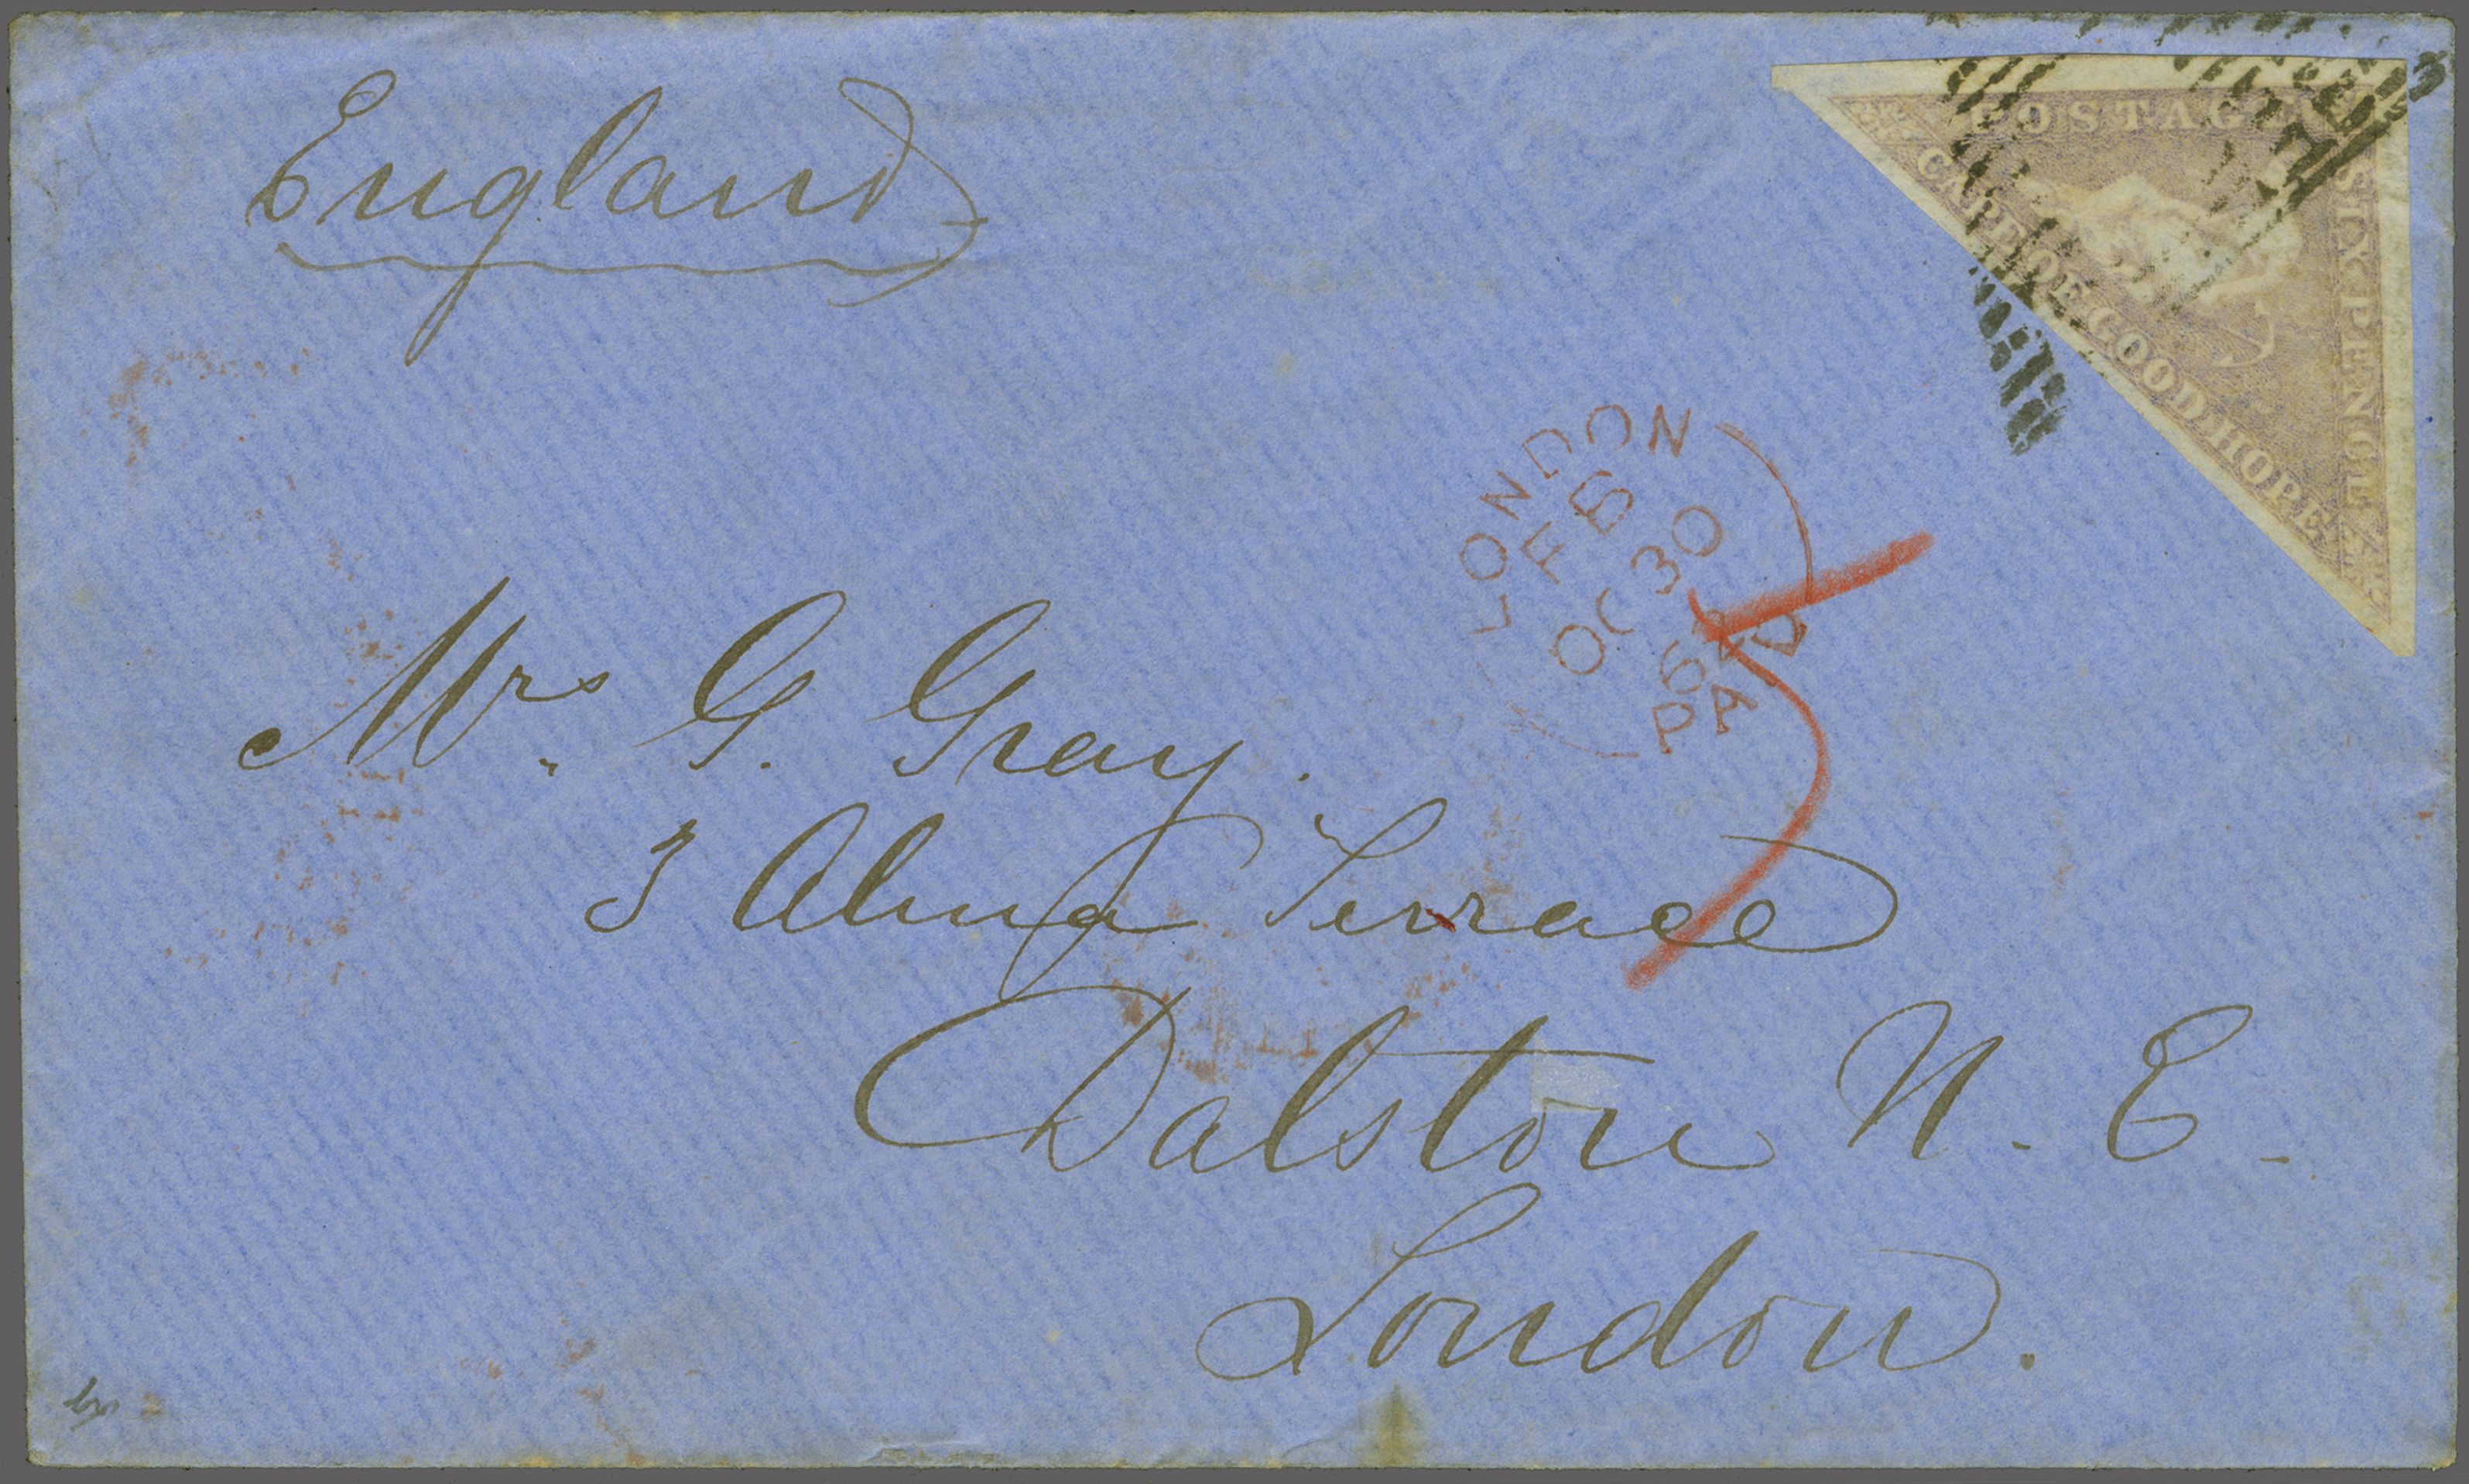 England
POSTAGE
SIX PENCE
CAPE OF GOOD HOPE
LONDON
FB
OC 30
PAID
5
Mrs. G. Gray.
3 Alma Terrace
Dalston N. E.
London.